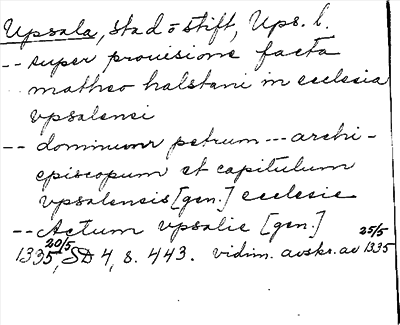 Upsala, stad o stift, Ups. l.
-- super prouisione facta
matheo halstani in ecclesia
vpsalensi
-- dominum petrum --- archi-
episcopum et capitulum
vpsalensis [gen.] ecclesie
-- Actum vpsalie [gen.]
1335 20/5, SD 4, s. 443. vidim. avskr. av 1335 25/5